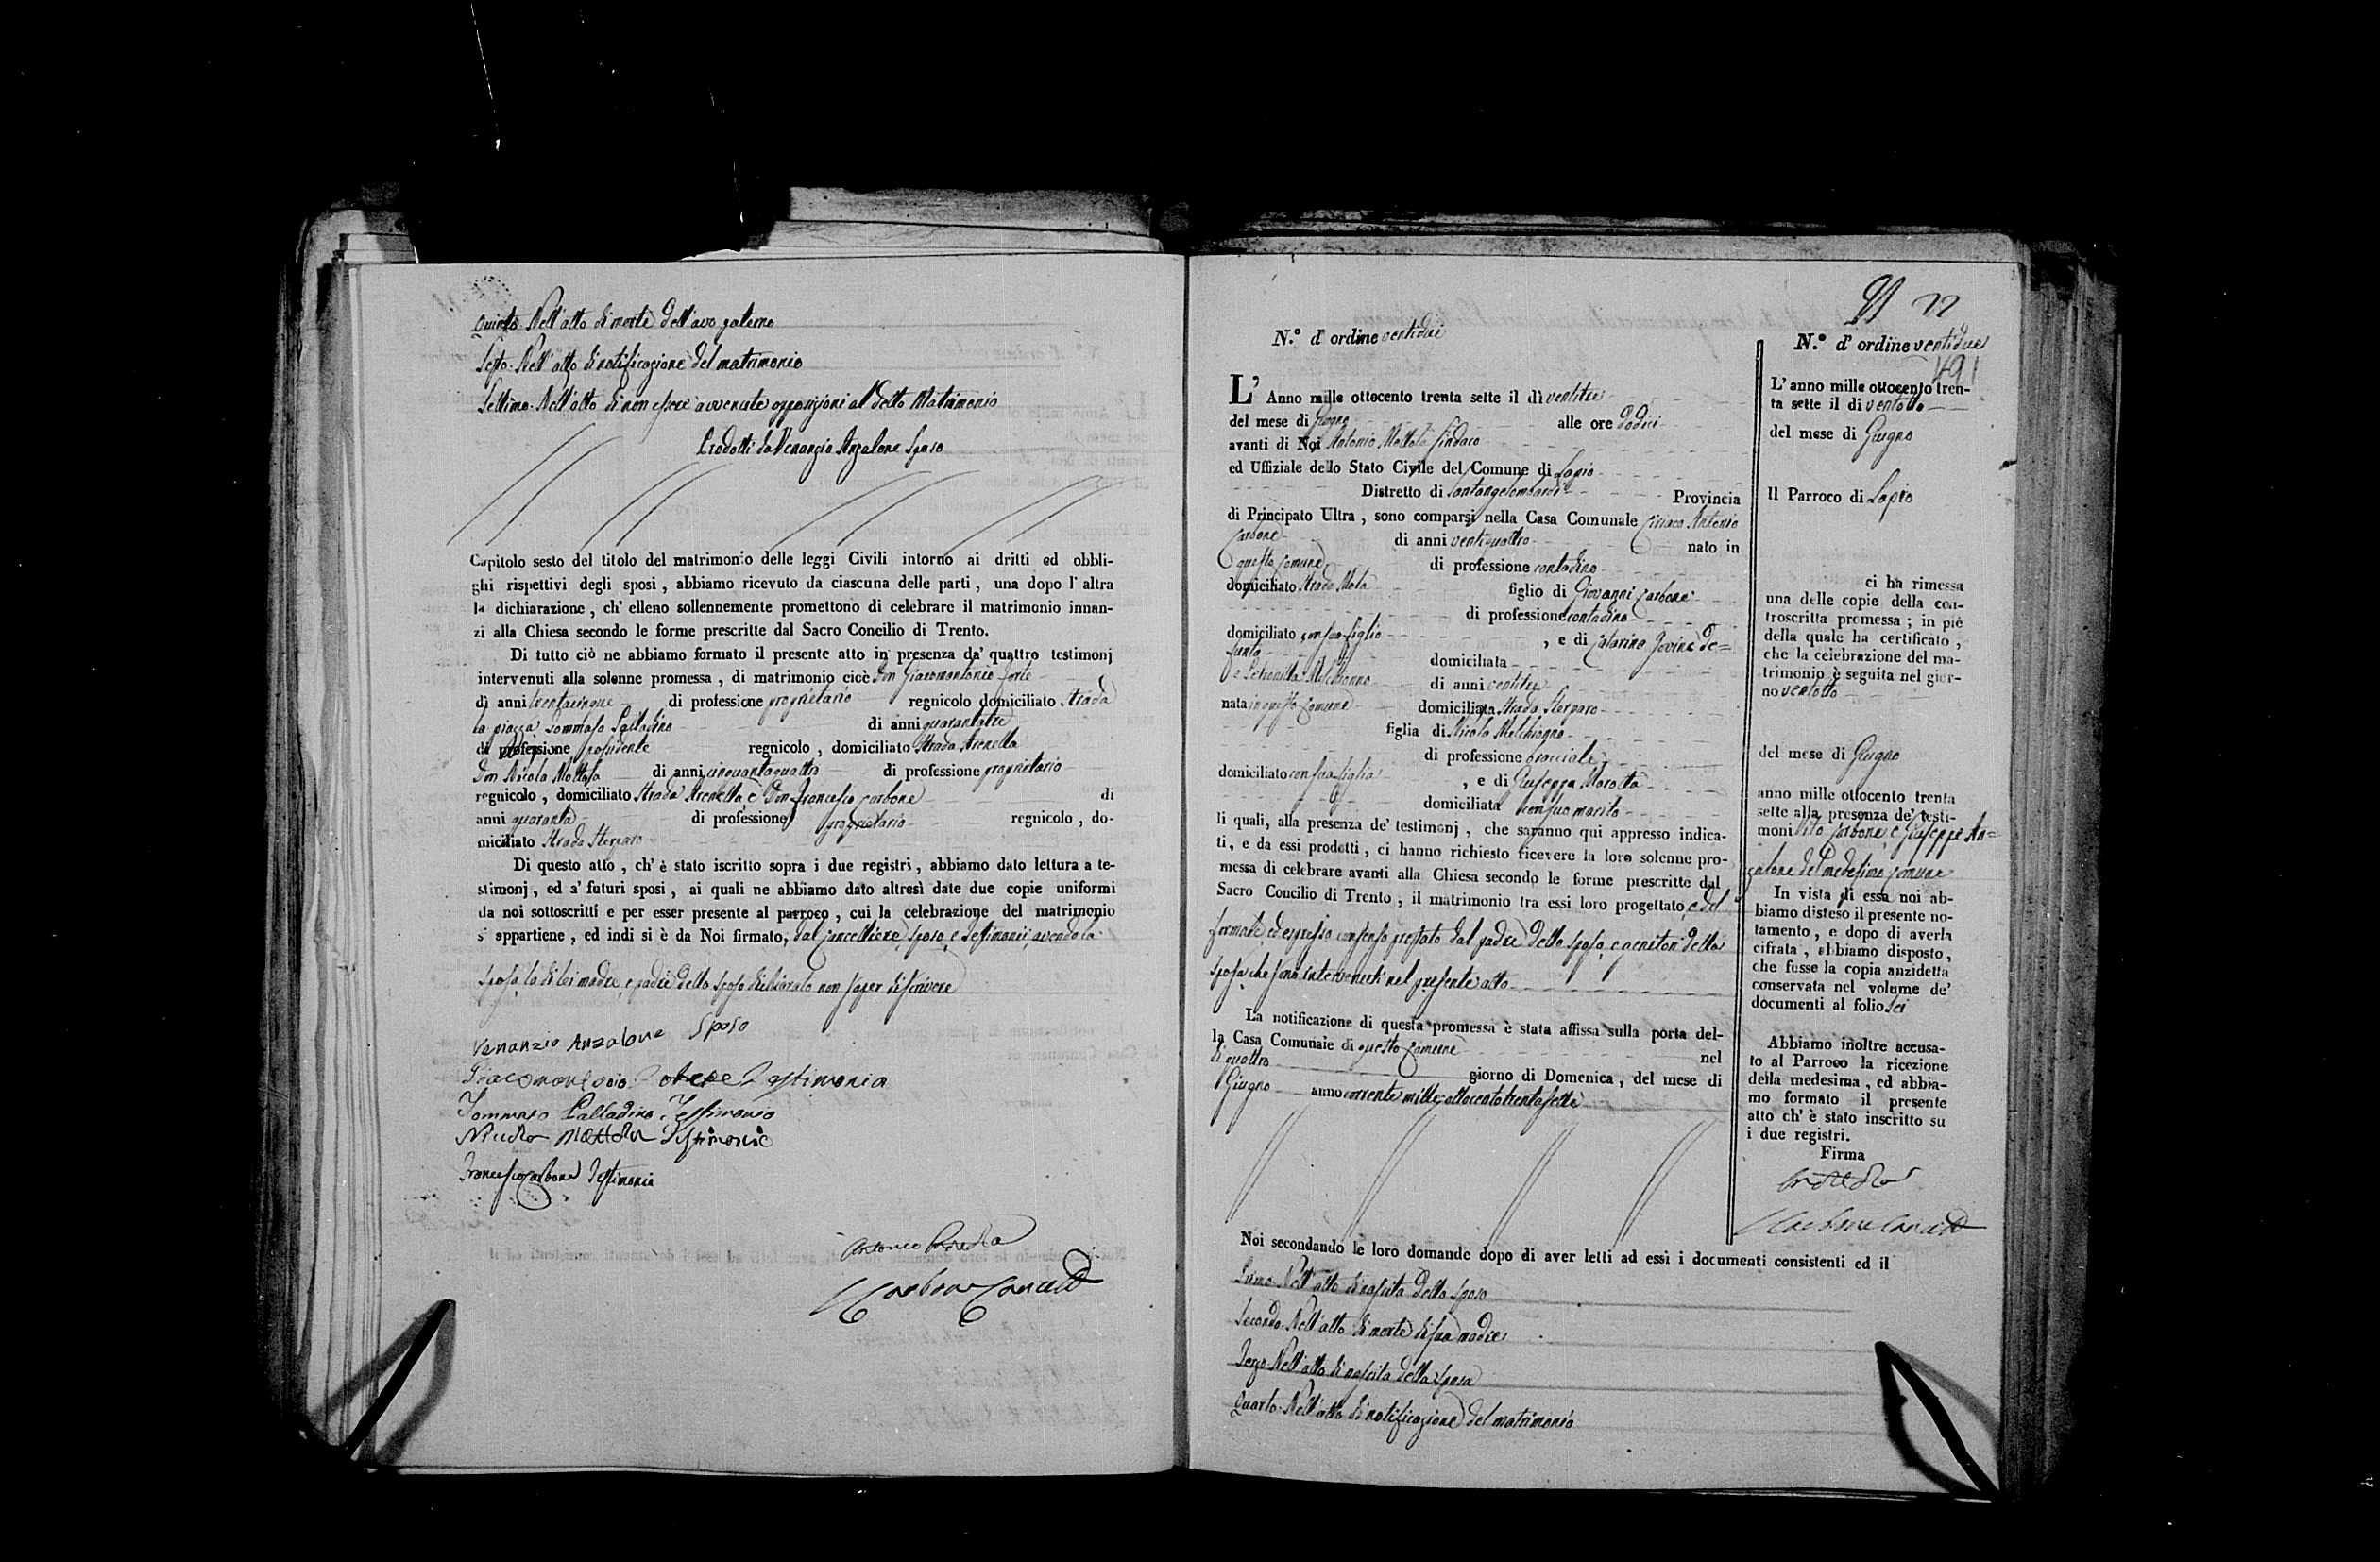 Quinto. Nell'atto di morte dell'avo paterno
Sesto. Nell'atto di notificazione del matrimonio
Settimo. Nell'atto di non essere avvenute opposizioni al detto Matrimonio
Prodotti da Venanzio Anzalone Sposo
Capitolo sesto del titolo del matrimonio delle leggi Civili intorno ai dritti ed obbli-
ghi rispettivi degli sposi, abbiamo ricevuto da ciascuna delle parti, una dopo l'altra
la dichiarazione, ch'elleno sollennemente promettono di celebrare il matrimonio innan-
zi alla Chiesa secondo le forme prescritte dal Sacro Concilio di Trento.
Di tutto ciò ne abbiamo formato il presente atto in presenza da' quattro testimonj
intervenuti alla solenne promessa, di matrimonio cioè Don Giacomantonio Forte
di anni trentacinque di professione proprietario regnicolo domiciliato Strada
la piazza Tommaso Palladino di anni quarantatre
di professione possidente regnicolo, domiciliato Strada Arenella
Don Nicola Mottola di anni cinquantaquattro di professione proprietario
regnicolo, domiciliato Strada Arenella, e Don Francesco Carbone di
anni quaranta di professione proprietario regnicolo, do-
miciliato Strada Sterparo
Di questo atto, ch'è stato iscritto sopra i due registri, abbiamo dato lettura a te-
stimonj, ed a' futuri sposi, ai quali ne abbiamo dato altresì date due copie uniformi
da noi sottoscritti e per esser presente al parroco, cui la celebrazione del matrimonio
s'appartiene, ed indi si è da Noi firmato, dal Cancelliere, sposo, e Testimonii avendo la
sposa, la di lei madre, e padre dello sposo dichiarato non saper di scrivere
Venanzio Anzalone Sposo
Giacomantonio Forte Testimonio
Tommaso Palladino Testimonio
Nicola Mottola Testimonio
Francesco Carbone Testimonio
Antonio Mottola
Carbone Cancell
22
N.° d'ordine ventidue
L'Anno mille ottocento trenta sette il dì ventitre
del mese di Giugno alle ore dodici
avanti di Noi Antonio Mottola Sindaco
ed Uffiziale dello Stato Civile del Comune di Lapio
Distretto di Santangelombardi Provincia
di Principato Ultra, sono comparsi nella Casa Comunale Ciriaco Antonio
Carbone di anni ventiquattro nato in
questo Comune di professione contadino
domiciliato Strada Mola figlio di Giovanni Carbone
di professione contadino
domiciliato con suo figlio, e di Catarina Jovine de=
funta domiciliata
e Petronilla Melchionno di anni ventitre
nata in questo Comune domiciliata Strada Sterparo
figlia di Nicola Melchionno
di professione bracciale
domiciliato con sua figlia, e di Giuseppa Marotta
domiciliata con suo marito
li quali, alla presenza de' testimonj, che saranno qui appresso indica-
ti, e da essi prodotti, ci hanno richiesto ricevere la loro solenne pro-
messa di celebrare avanti alla Chiesa secondo le forme prescritte dal
Sacro Concilio di Trento, il matrimonio tra essi loro progettato, e del
formale, ed espresso consenso prestato dal padre dello sposo, e genitori della
sposa che sono intervenuti nel presente atto
La notificazione di questa promessa è stata affissa sulla porta del-
la Casa Comunale di questo Comune nel
dì quattro giorno di Domenica, del mese di
Giugno anno corrente mille ottocento trentasette
Noi secondando le loro domande dopo di aver letti ad essi i documenti consistenti ed il
Primo. Nell'atto di nascita dello sposo
Secondo. Nell'atto di morte di sua madre
Terzo. Nell'atto di nascita della sposa
Quarto. Nell'atto di notificazione del matrimonio
N.° d'ordine ventidue
491
L'anno mille ottocento tren-
ta sette il di ventotto
del mese di Giugno
Il Parroco di Lapio
ci ha rimessa
una delle copie della con-
troscritta promessa; in piè
della quale ha certificato,
che la celebrazione del ma-
trimonio è seguita nel gior-
no ventotto
del mese di Giugno
anno mille ottocento trenta
sette alla presenza de' testi-
moni Vito Carbone, e Giuseppe An=
zalone del medesimo Comune
In vista di essa noi ab-
biamo disteso il presente no-
tamento, e dopo di averla
cifrata, abbiamo disposto,
che fusse la copia anzidetta
conservata nel volume de'
documenti al folio sei
Abbiamo inoltre accusa-
to al Parroco la ricezione
della medesima, ed abbia-
mo formato il presente
atto ch'è stato inscritto su
i due registri.
Firma
Mottola
Carbone Cancell